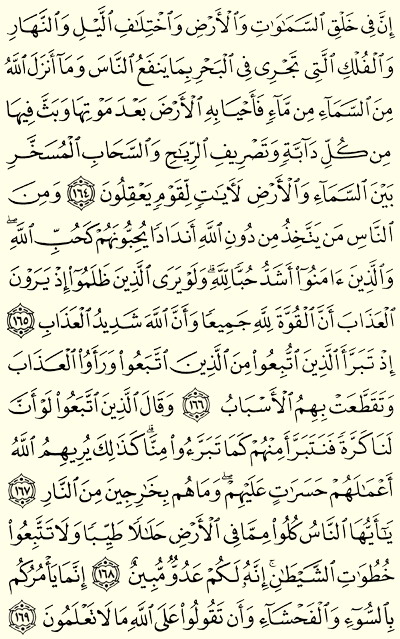 إِنَّ فِي خَلْقِ السَّمَٰوَٰتِ وَالْأَرْضِ وَاخْتِلَٰفِ الَّيْلِ وَالنَّهَارِ
وَالْفُلْكِ الَّتِي تَجْرِي فِي الْبَحْرِ بِمَا يَنفَعُ النَّاسَ وَمَآ أَنزَلَ اللَّهُ
مِنَ السَّمَآءِ مِن مَّآءٍ فَأَحْيَا بِهِ الْأَرْضَ بَعْدَ مَوْتِهَا وَبَثَّ فِيهَا
مِن كُلِّ دَآبَّةٍ وَتَصْرِيفِ الرِّيَٰحِ وَالسَّحَابِ الْمُسَخَّرِ
بَيْنَ السَّمَآءِ وَالْأَرْضِ لَءَايَٰتٍ لِّقَوْمٍ يَعْقِلُونَ ١٦٤ وَمِنَ
النَّاسِ مَن يَتَّخِذُ مِن دُونِ اللَّهِ أَندَادًا يُحِبُّونَهُمْ كَحُبِّ اللَّهِ ۖ
وَالَّذِينَ ءَامَنُوٓا أَشَدُّ حُبًّا لِّلَّهِ ۗ وَلَوْ يَرَى الَّذِينَ ظَلَمُوٓا إِذْ يَرَوْنَ
الْعَذَابَ أَنَّ الْقُوَّةَ لِلَّهِ جَمِيعًا وَأَنَّ اللَّهَ شَدِيدُ الْعَذَابِ ١٦٥
إِذْ تَبَرَّأَ الَّذِينَ اتُّبِعُوا مِنَ الَّذِينَ اتَّبَعُوا وَرَأَوُا الْعَذَابَ
وَتَقَطَّعَتْ بِهِمُ الْأَسْبَابُ ١٦٦ وَقَالَ الَّذِينَ اتَّبَعُوا لَوْ أَنَّ
لَنَا كَرَّةً فَنَتَبَرَّأَ مِنْهُمْ كَمَا تَبَرَّءُوا مِنَّا ۗ كَذَٰلِكَ يُرِيهِمُ اللَّهُ
أَعْمَٰلَهُمْ حَسَرَٰتٍ عَلَيْهِمْ ۖ وَمَا هُم بِخَٰرِجِينَ مِنَ النَّارِ ١٦٧
يَٰٓأَيُّهَا النَّاسُ كُلُوا مِمَّا فِي الْأَرْضِ حَلَٰلًا طَيِّبًا وَلَا تَتَّبِعُوا
خُطُوَٰتِ الشَّيْطَٰنِ ۚ إِنَّهُ لَكُمْ عَدُوٌّ مُّبِينٌ ١٦٨ إِنَّمَا يَأْمُرُكُم
بِالسُّوٓءِ وَالْفَحْشَآءِ وَأَن تَقُولُوا عَلَى اللَّهِ مَا لَا تَعْلَمُونَ ١٦٩